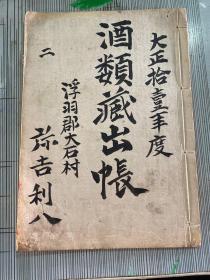 大正拾壹年度
酒類藏出帳
浮羽郡大石村
弥吉利八
二